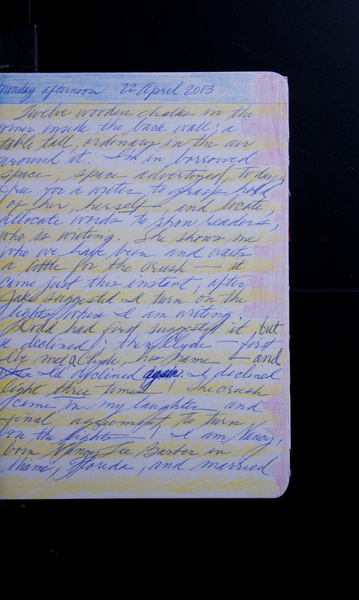 Monday afternoon 22 April 2013
Twelve wooden chairs in the
corner inside the back wall; a
table tall, ordinary in the air
around it. I'm in borrowed
space, space advertised, today,
free for a writer to grasp hold
of her, herself and locate
allocate words to show readers,
who is writing. She shows me
who we have been and waits
a little for the crush — it
came just this instant, after
Jake suggested I turn on the
lights where I am writing.
Todd had first suggested it, but
I declined; then Clyde — first
I've met a Clyde, his name — and
I declined again: I declined
light three times. The crush
came in my laughter and
final agreement to turn
on the lights. I am Nancy,
born Nancy Lee Barber in
Miami, Florida, and married